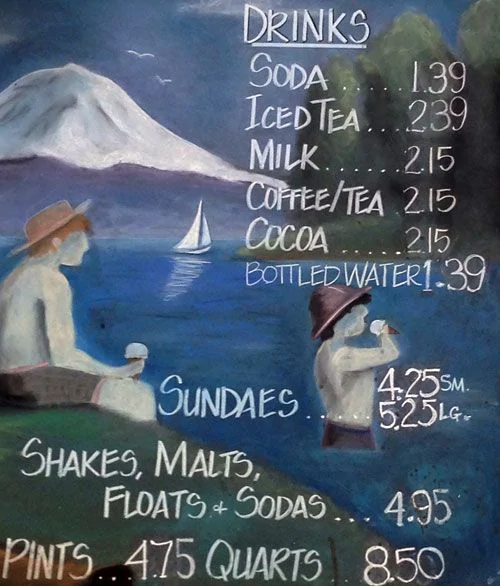 DRINKS
SODA ..... 1.39
ICED TEA... 2.39
MILK....... 2.15
COFFEE/TEA . 2.15
COCOA ..... 2.15
BOTTLED WATER 1.39
SUNDAES .... 4.25 SM.
5.25 LG.
SHAKES, MALTS,
FLOATS & SODAS ... 4.95
PINTS... 4.75 QUARTS . 8.50